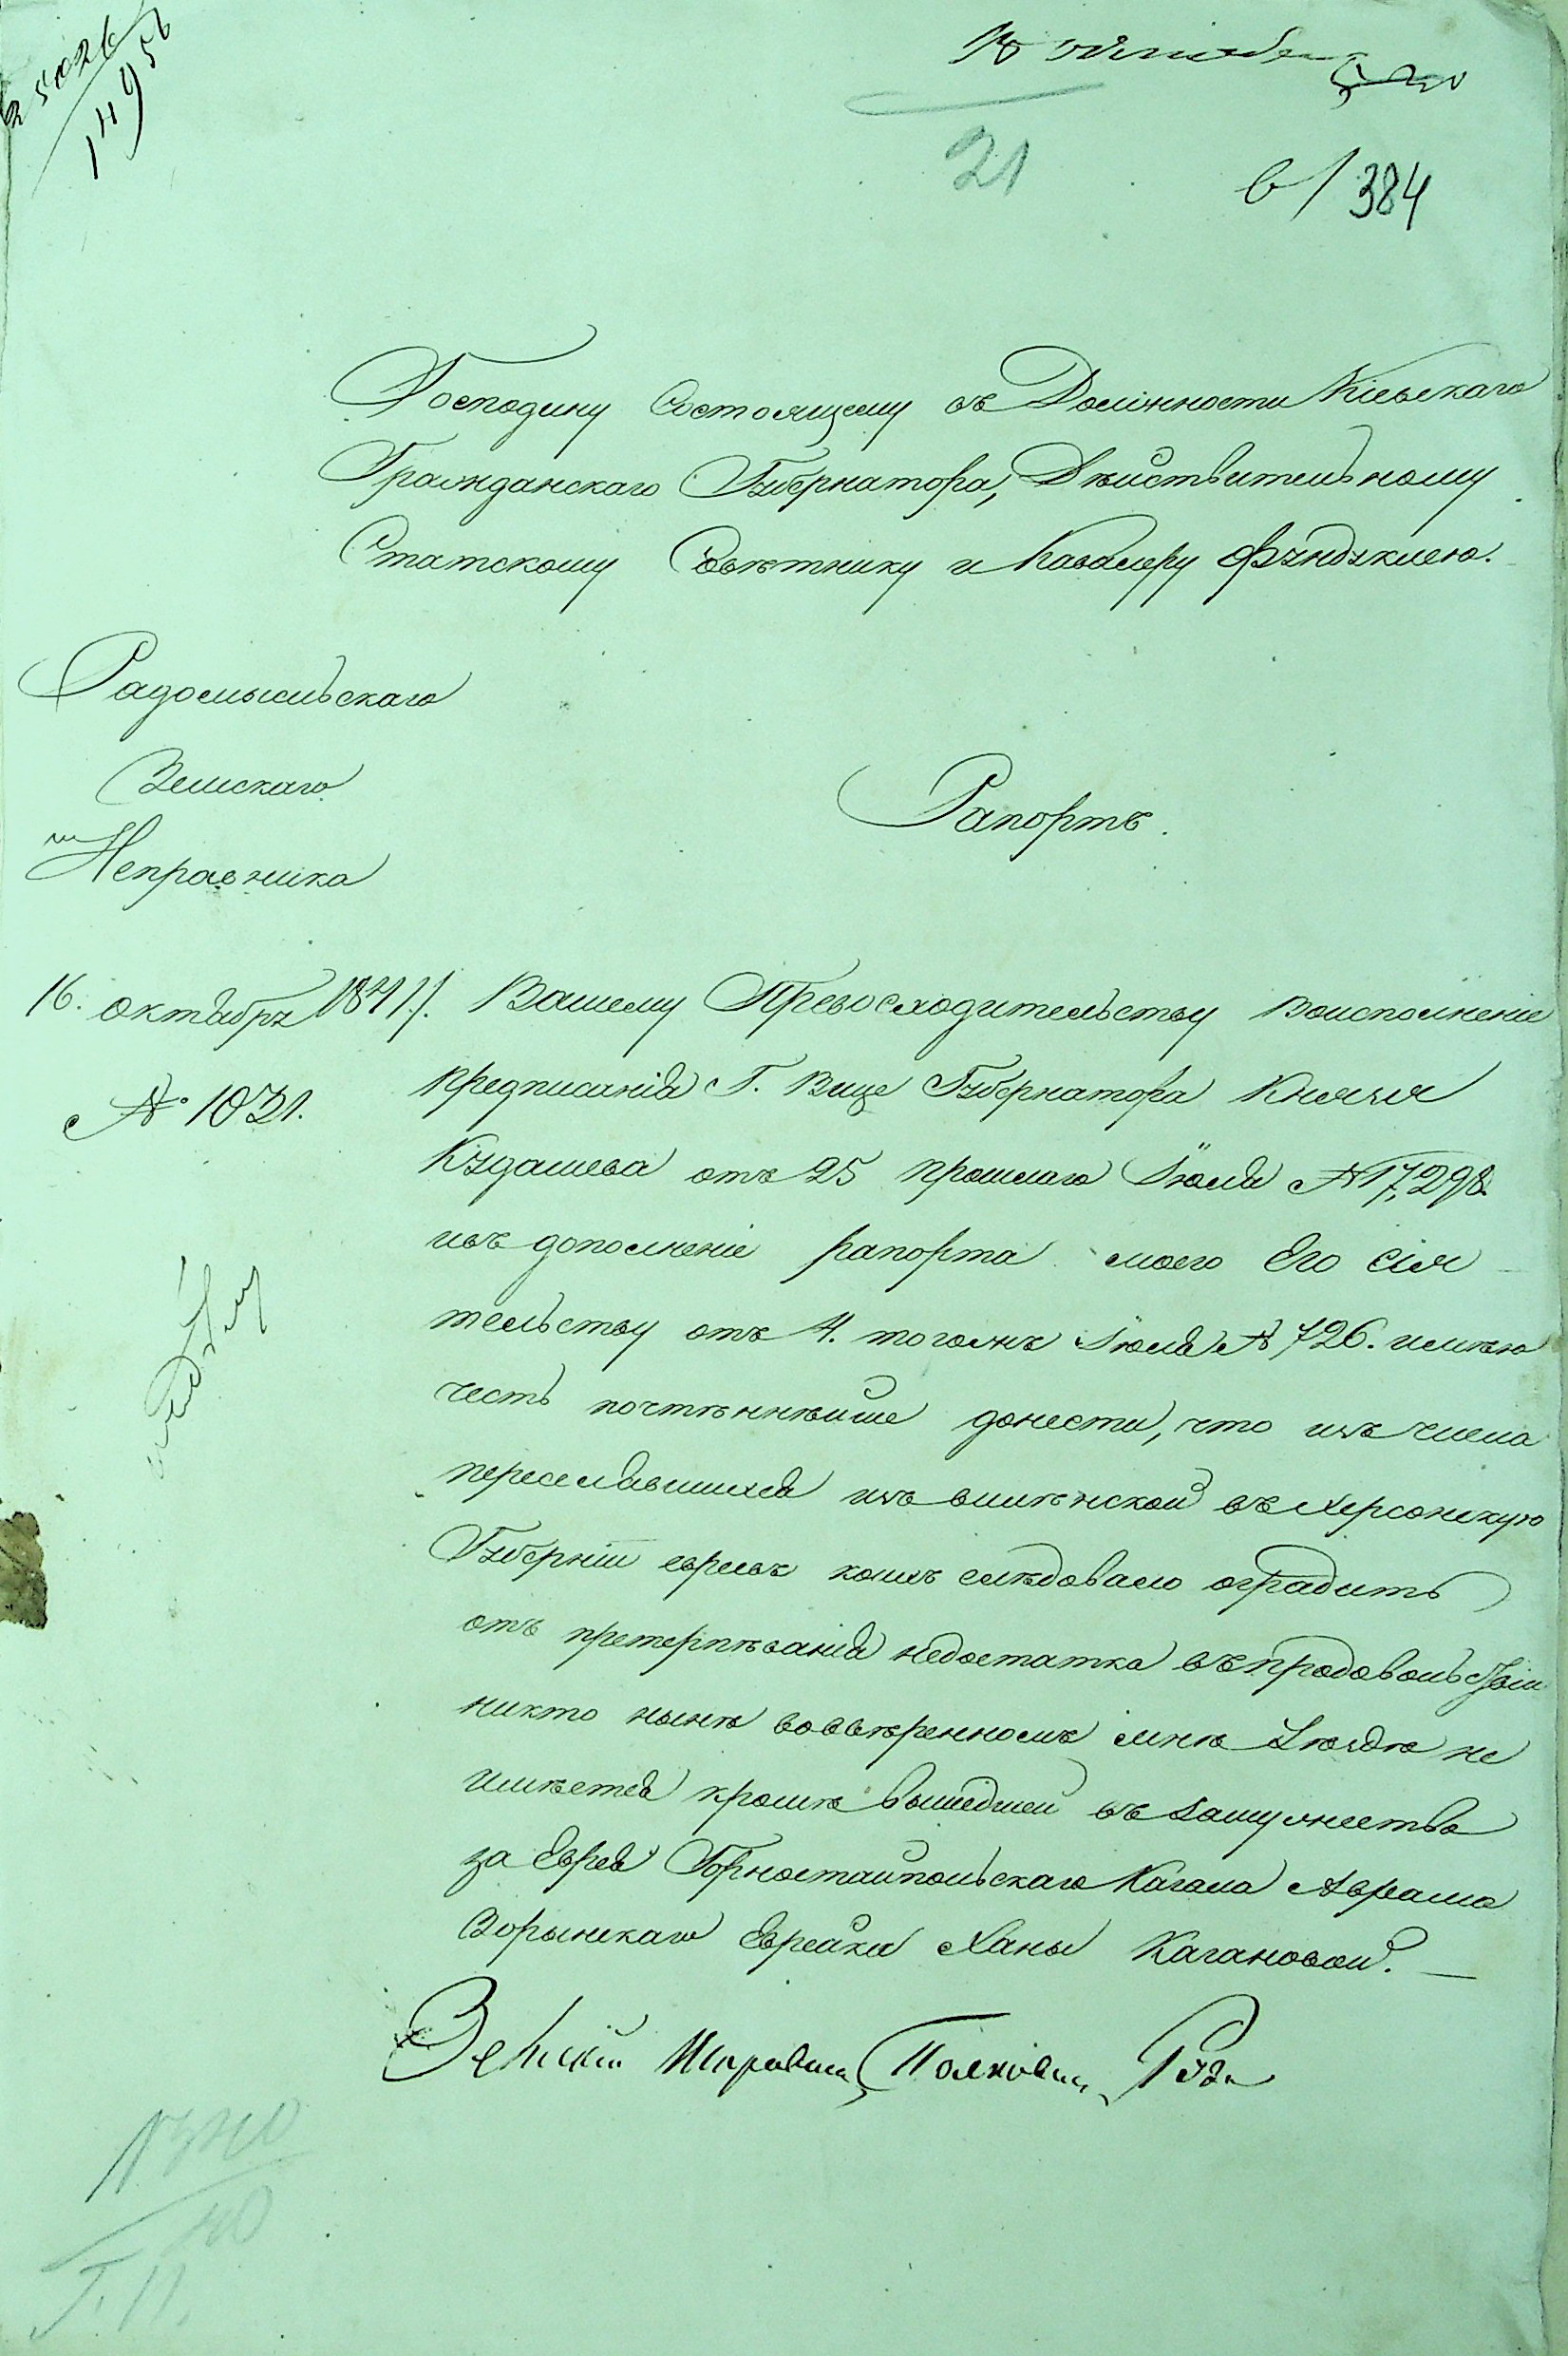 25026
14956
21
в/384
Господину Состоящему въ Должности Кіевскаго
Гражданскаго Губернатора, Дѣйствительному
Статскому Совѣтнику и Кавалеру Фундуклею.
Радомысльскаго
Земскаго
Исправника
Рапортъ.
16. октября 1841 г.
№ 1031.
Вашему Превосходительству воисполненіе
предписанія Г. Вице Губернатора Князя
Кудашева отъ 25 прошлаго Іюля № 17,298.
ивъ дополненіе рапорта моего Его Сія
тельству отъ 4. тогожъ Іюля № 726. имѣю
честь почтѣннѣйше донести, что изъ числа
переселявшихся изъ виленской въ Херсонскую
Губерніи евреевъ коихъ слѣдовало оградить
отъ претерпѣванія недостатка въ продовольствіи
никто нынѣ вовверенномъ мнѣ Уѣздѣ не
имѣется кромѣ вышедшей въ замужество
за Еврея Горностайпольскаго Кагала Аврама
Зорынскаго Еврейки Ханы Кагановой.
Земскій Исправник Полковник